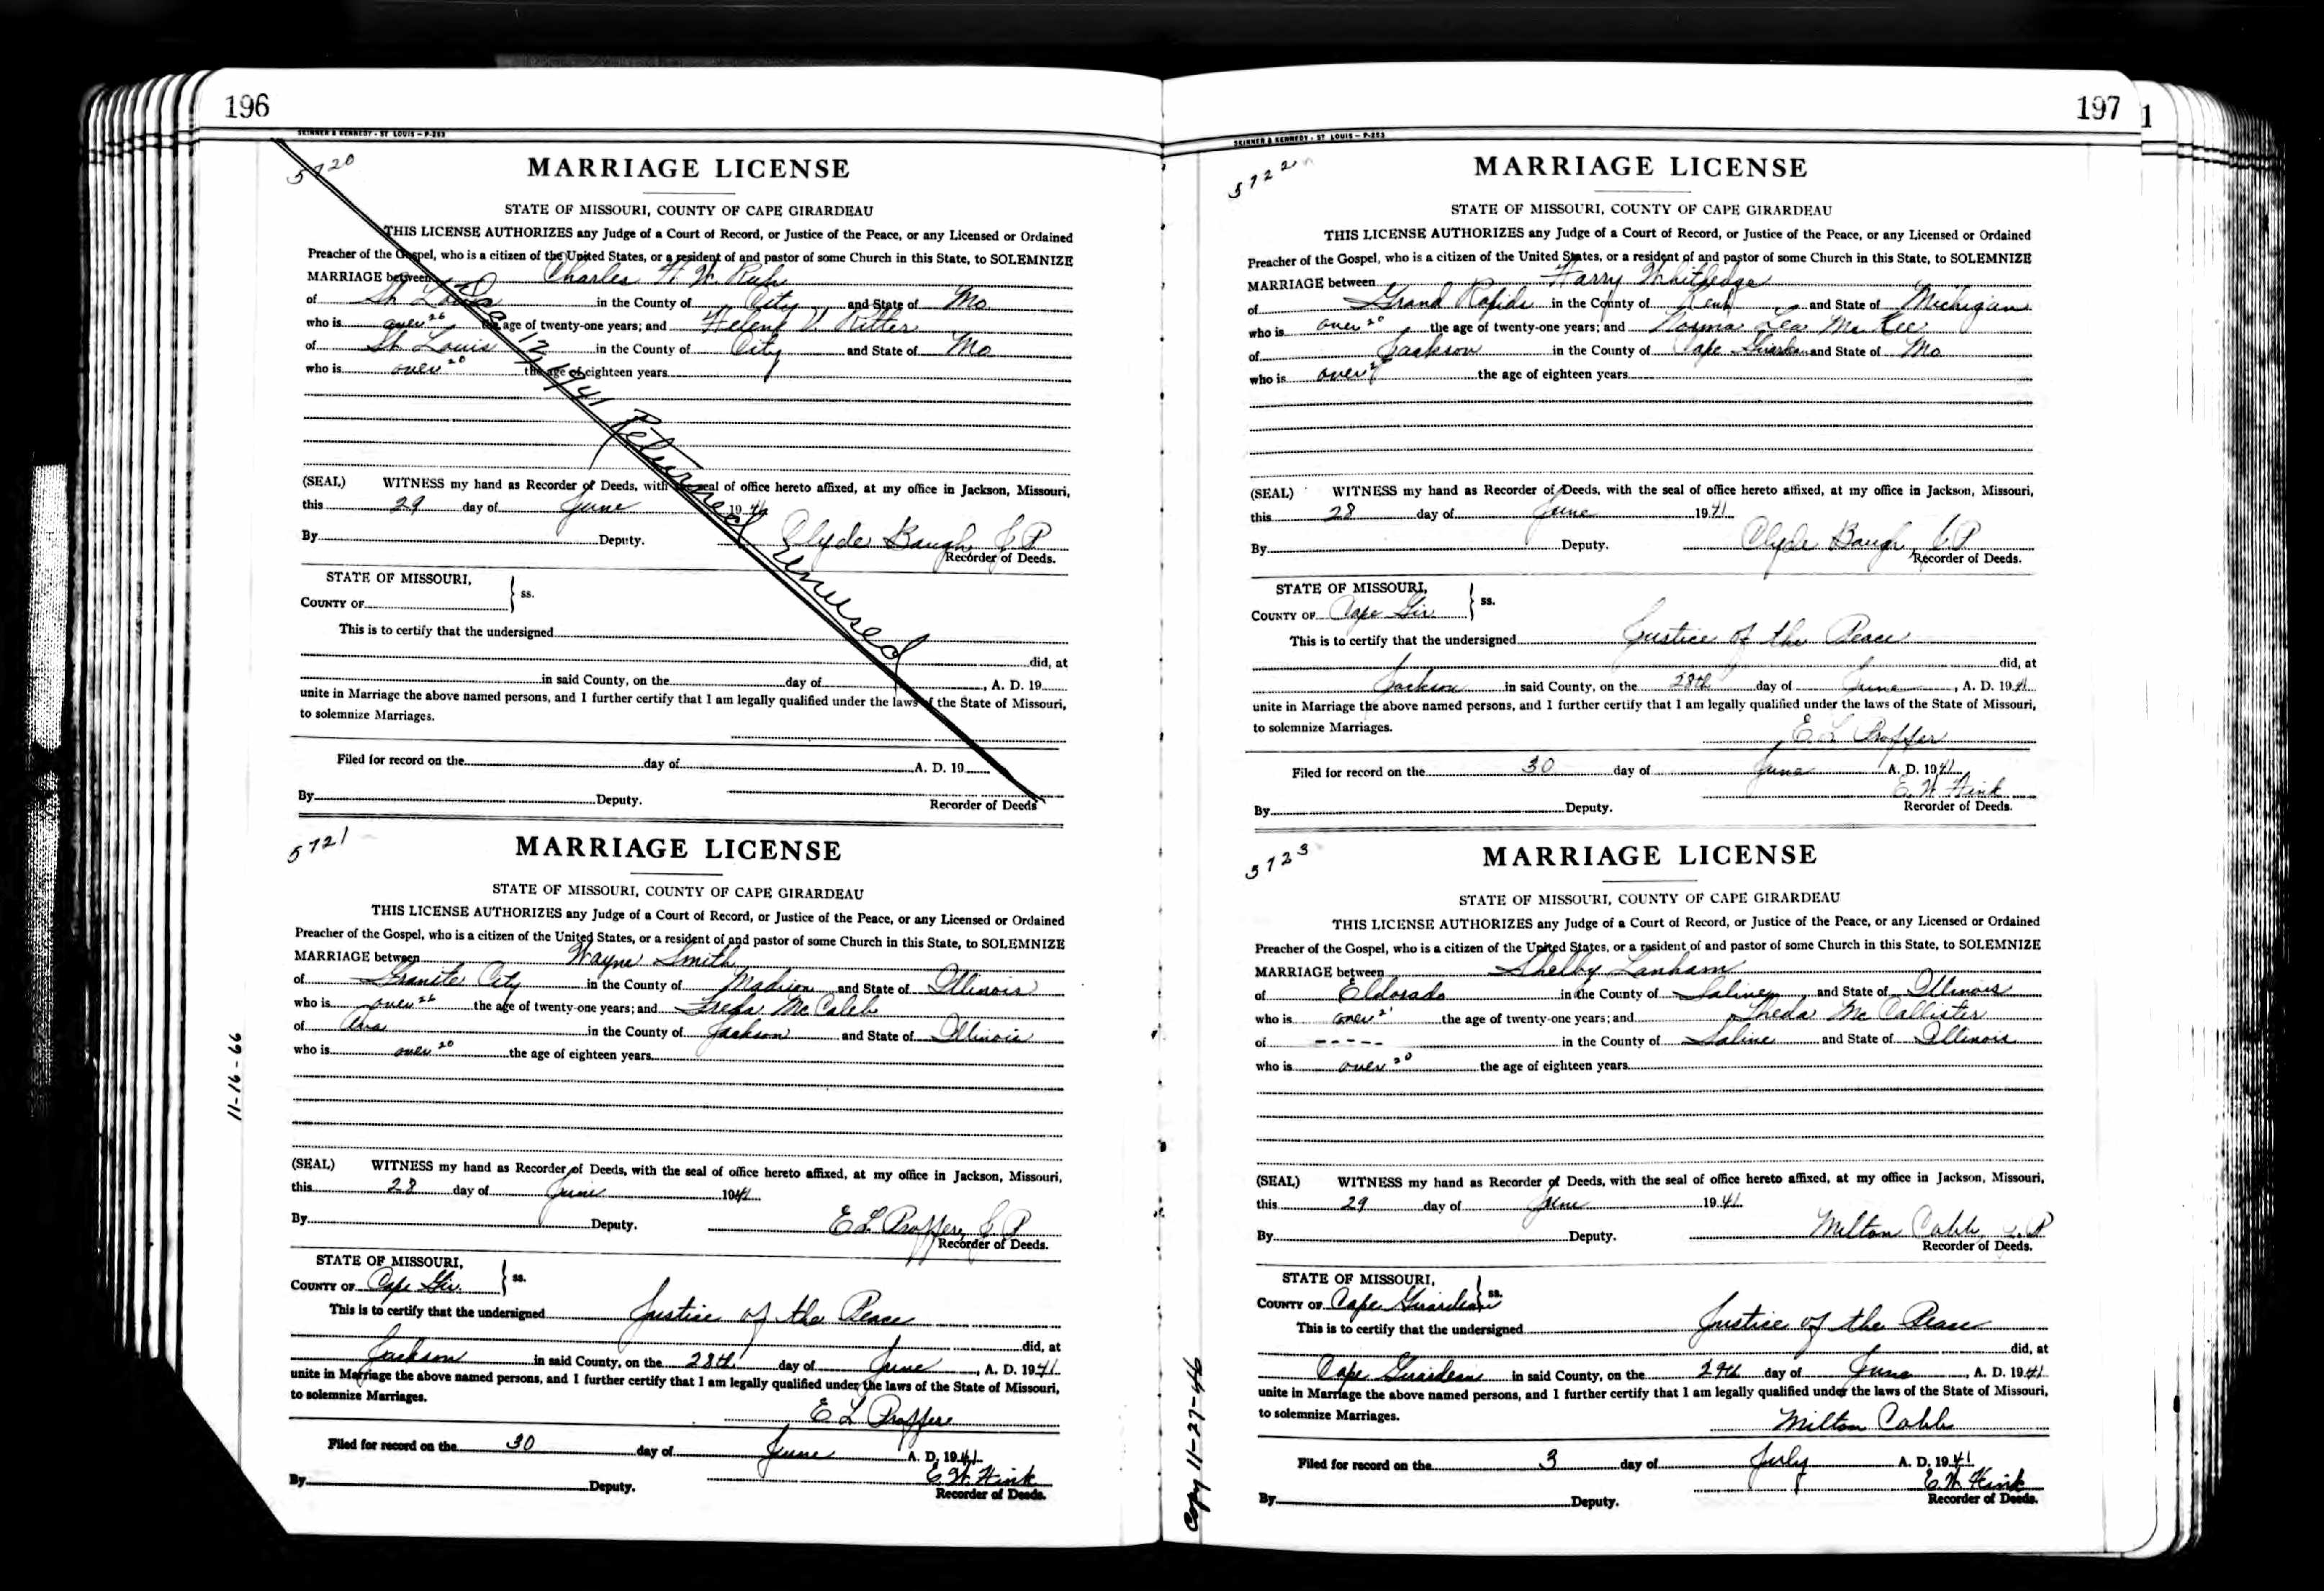 196
SKINNER & KENNEDY - ST LOUIS - P-253
5720
MARRIAGE LICENSE
STATE OF MISSOURI, COUNTY OF CAPE GIRARDEAU
THIS LICENSE AUTHORIZES any Judge of a Court of Record, or Justice of the Peace, or any Licensed or Ordained
Preacher of the Gospel, who is a citizen of the United States, or a resident of and pastor of some Church in this State, to SOLEMNIZE
MARRIAGE between Charles H. W.
of St Louis in the County of City and State of Mo
who is over 26 the age of twenty-one years; and Helene V. Ritter
of St Louis in the County of City and State of Mo
who is over 20 the age of eighteen years
1941 Returned Unused
(SEAL) WITNESS my hand as Recorder of Deeds, with the seal of office hereto affixed, at my office in Jackson, Missouri,
this 29 day of June 19
By Deputy. Clyde Baugh J P
Recorder of Deeds.
STATE OF MISSOURI,
COUNTY OF } ss.
This is to certify that the undersigned
did, at
in said County, on the day of , A. D. 19
unite in Marriage the above named persons, and I further certify that I am legally qualified under the laws of the State of Missouri,
to solemnize Marriages.
Filed for record on the day of A. D. 19
By Deputy. Recorder of Deeds
5721
MARRIAGE LICENSE
STATE OF MISSOURI, COUNTY OF CAPE GIRARDEAU
THIS LICENSE AUTHORIZES any Judge of a Court of Record, or Justice of the Peace, or any Licensed or Ordained
Preacher of the Gospel, who is a citizen of the United States, or a resident of and pastor of some Church in this State, to SOLEMNIZE
MARRIAGE between Wayne Smith
of Granite City in the County of Madison and State of Illinois
who is over 26 the age of twenty-one years; and Freda McCaleb
of Ava in the County of Jackson and State of Illinois
who is over 20 the age of eighteen years
11-16-66
(SEAL) WITNESS my hand as Recorder of Deeds, with the seal of office hereto affixed, at my office in Jackson, Missouri,
this 28 day of June 1941
By Deputy. E L Proffer, J P
Recorder of Deeds.
STATE OF MISSOURI,
COUNTY OF Cape Gir. } ss.
This is to certify that the undersigned Justice of the Peace
did, at
Jackson in said County, on the 28th day of June , A. D. 1941
unite in Marriage the above named persons, and I further certify that I am legally qualified under the laws of the State of Missouri,
to solemnize Marriages.
E L Proffer
Filed for record on the 30 day of June A. D. 1941
E. W. Hink
By Deputy. Recorder of Deeds.
197
1
SKINNER & KENNEDY - ST LOUIS - P-253
5722
MARRIAGE LICENSE
STATE OF MISSOURI, COUNTY OF CAPE GIRARDEAU
THIS LICENSE AUTHORIZES any Judge of a Court of Record, or Justice of the Peace, or any Licensed or Ordained
Preacher of the Gospel, who is a citizen of the United States, or a resident of and pastor of some Church in this State, to SOLEMNIZE
MARRIAGE between Harry Whitledge
of Grand Rapids in the County of Kent and State of Michigan
who is over 20 the age of twenty-one years; and Norma Lea McKee
of Jackson in the County of Cape Girardeau and State of Mo
who is over the age of eighteen years
(SEAL) WITNESS my hand as Recorder of Deeds, with the seal of office hereto affixed, at my office in Jackson, Missouri,
this 28 day of June 1941
By Deputy. Clyde Baugh, J P
Recorder of Deeds.
STATE OF MISSOURI,
COUNTY OF Cape Gir } ss.
This is to certify that the undersigned Justice of the Peace
did, at
Jackson in said County, on the 28th day of June , A. D. 1941
unite in Marriage the above named persons, and I further certify that I am legally qualified under the laws of the State of Missouri,
to solemnize Marriages.
E L Proffer
Filed for record on the 30 day of June A. D. 1941
E. W. Hink
By Deputy. Recorder of Deeds.
5723
MARRIAGE LICENSE
STATE OF MISSOURI, COUNTY OF CAPE GIRARDEAU
THIS LICENSE AUTHORIZES any Judge of a Court of Record, or Justice of the Peace, or any Licensed or Ordained
Preacher of the Gospel, who is a citizen of the United States, or a resident of and pastor of some Church in this State, to SOLEMNIZE
MARRIAGE between Shelby Lanham
of Eldorado in the County of Saline and State of Illinois
who is over 21 the age of twenty-one years; and Theda McCallister
of ----- in the County of Saline and State of Illinois
who is over 20 the age of eighteen years
(SEAL) WITNESS my hand as Recorder of Deeds, with the seal of office hereto affixed, at my office in Jackson, Missouri,
this 29 day of June 1941
By Deputy. Milton Cobb, J. P
Recorder of Deeds.
STATE OF MISSOURI,
COUNTY OF Cape Girardeau } ss.
This is to certify that the undersigned Justice of the Peace
did, at
Cape Girardeau in said County, on the 29th day of June , A. D. 1941
unite in Marriage the above named persons, and I further certify that I am legally qualified under the laws of the State of Missouri,
to solemnize Marriages.
Milton Cobb
Copy 11-27-46
Filed for record on the 3 day of July A. D. 1941
E. W. Hink
By Deputy. Recorder of Deeds.